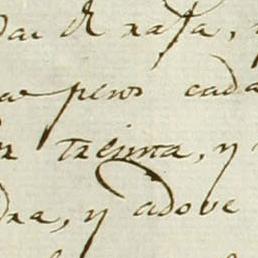 de rasa,
pesos cada
treinta, y
dra, y adove